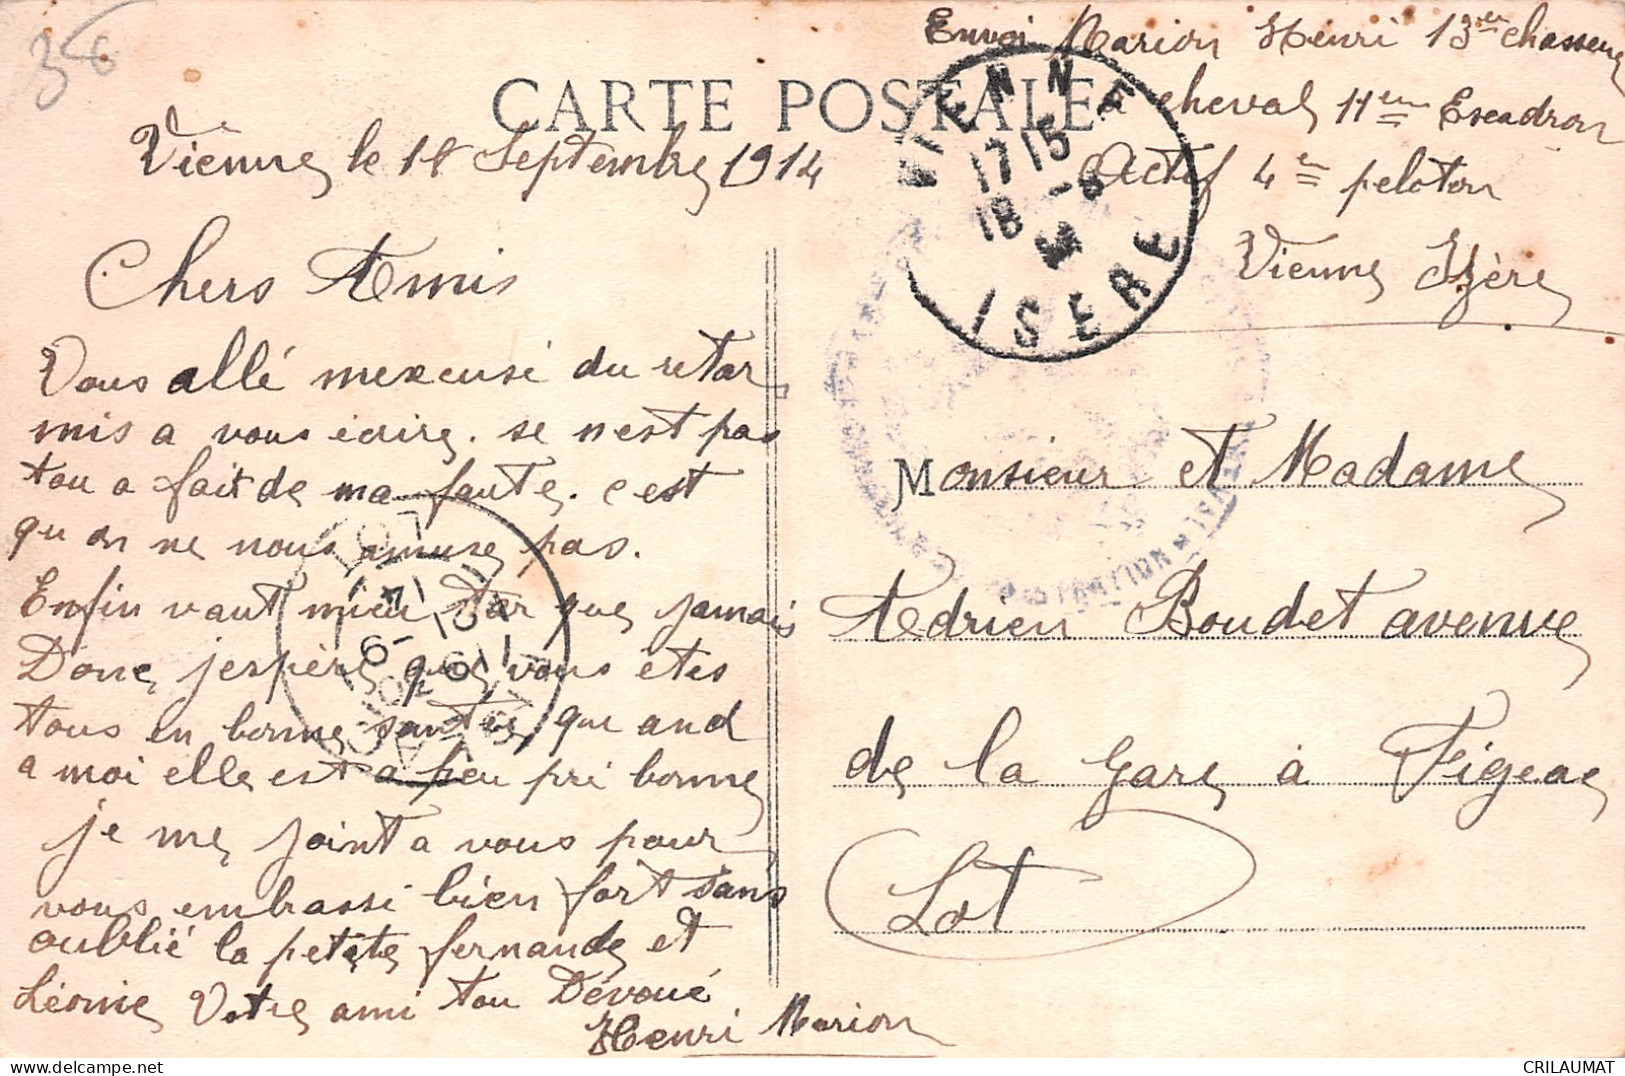 36
Envoi Marion Henri 13em Chasseur
CARTE POSTALE
a cheval 11em Escadron
Actif 4e peloton
Vienne Izère
VIENNE
17 15
18 - 9
14
ISERE
Vienne le 18 Septembre 1914
Chers Amis
Vous allé mexcusé du retar
mis a vous écrire. se nest pas
tou a fait de ma faute. c est
qu on ne nous amuse pas.
Enfin vaut mieu tar que jamais
Donc jespère que vous êtes
tous en bonne santée que and
a moi elle est a peu pri bonne
je me joint a vous pour
vous embrassé bien fort sans
oublié la petite fernande et
Léonie Votre ami tou Dévoué
Henri Marion
Monsieur et Madame
Adrien Boudet avenue
de la Gare à Figeac
Lot
LOT
CRILAUMAT